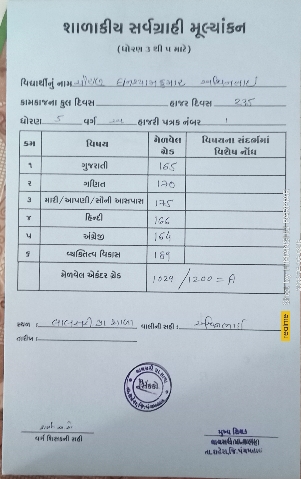 શાળાકીય સર્વગ્રાહી મૂલ્યાંકન
(ધોરણ ૩ થી ૫ માટે)
વિદ્યાર્થીનું નામ
કામકાજના કુલ દિવસ હાજર દિવસ 235
ધોરણ 5 વર્ગ અ હાજરી પત્રક નંબર 1
ક્રમ વિષય મેળવેલ ગ્રેડ વિષયના સંદર્ભમાં વિશેષ નોંધ
૧ ગુજરાતી 165
૨ ગણિત 170
૩ મારી/આપણી/સૌની આસપાસ 175
૪ હિન્દી 166
૫ અંગ્રેજી 164
૬ વ્યક્તિત્વ વિકાસ 189
મેળવેલ એકંદર ગ્રેડ 1029/1200 = A
સ્થળ : વાલીની સહી :
તારીખ :
realme
વર્ગ શિક્ષકની સહી
મુખ્ય શિક્ષક